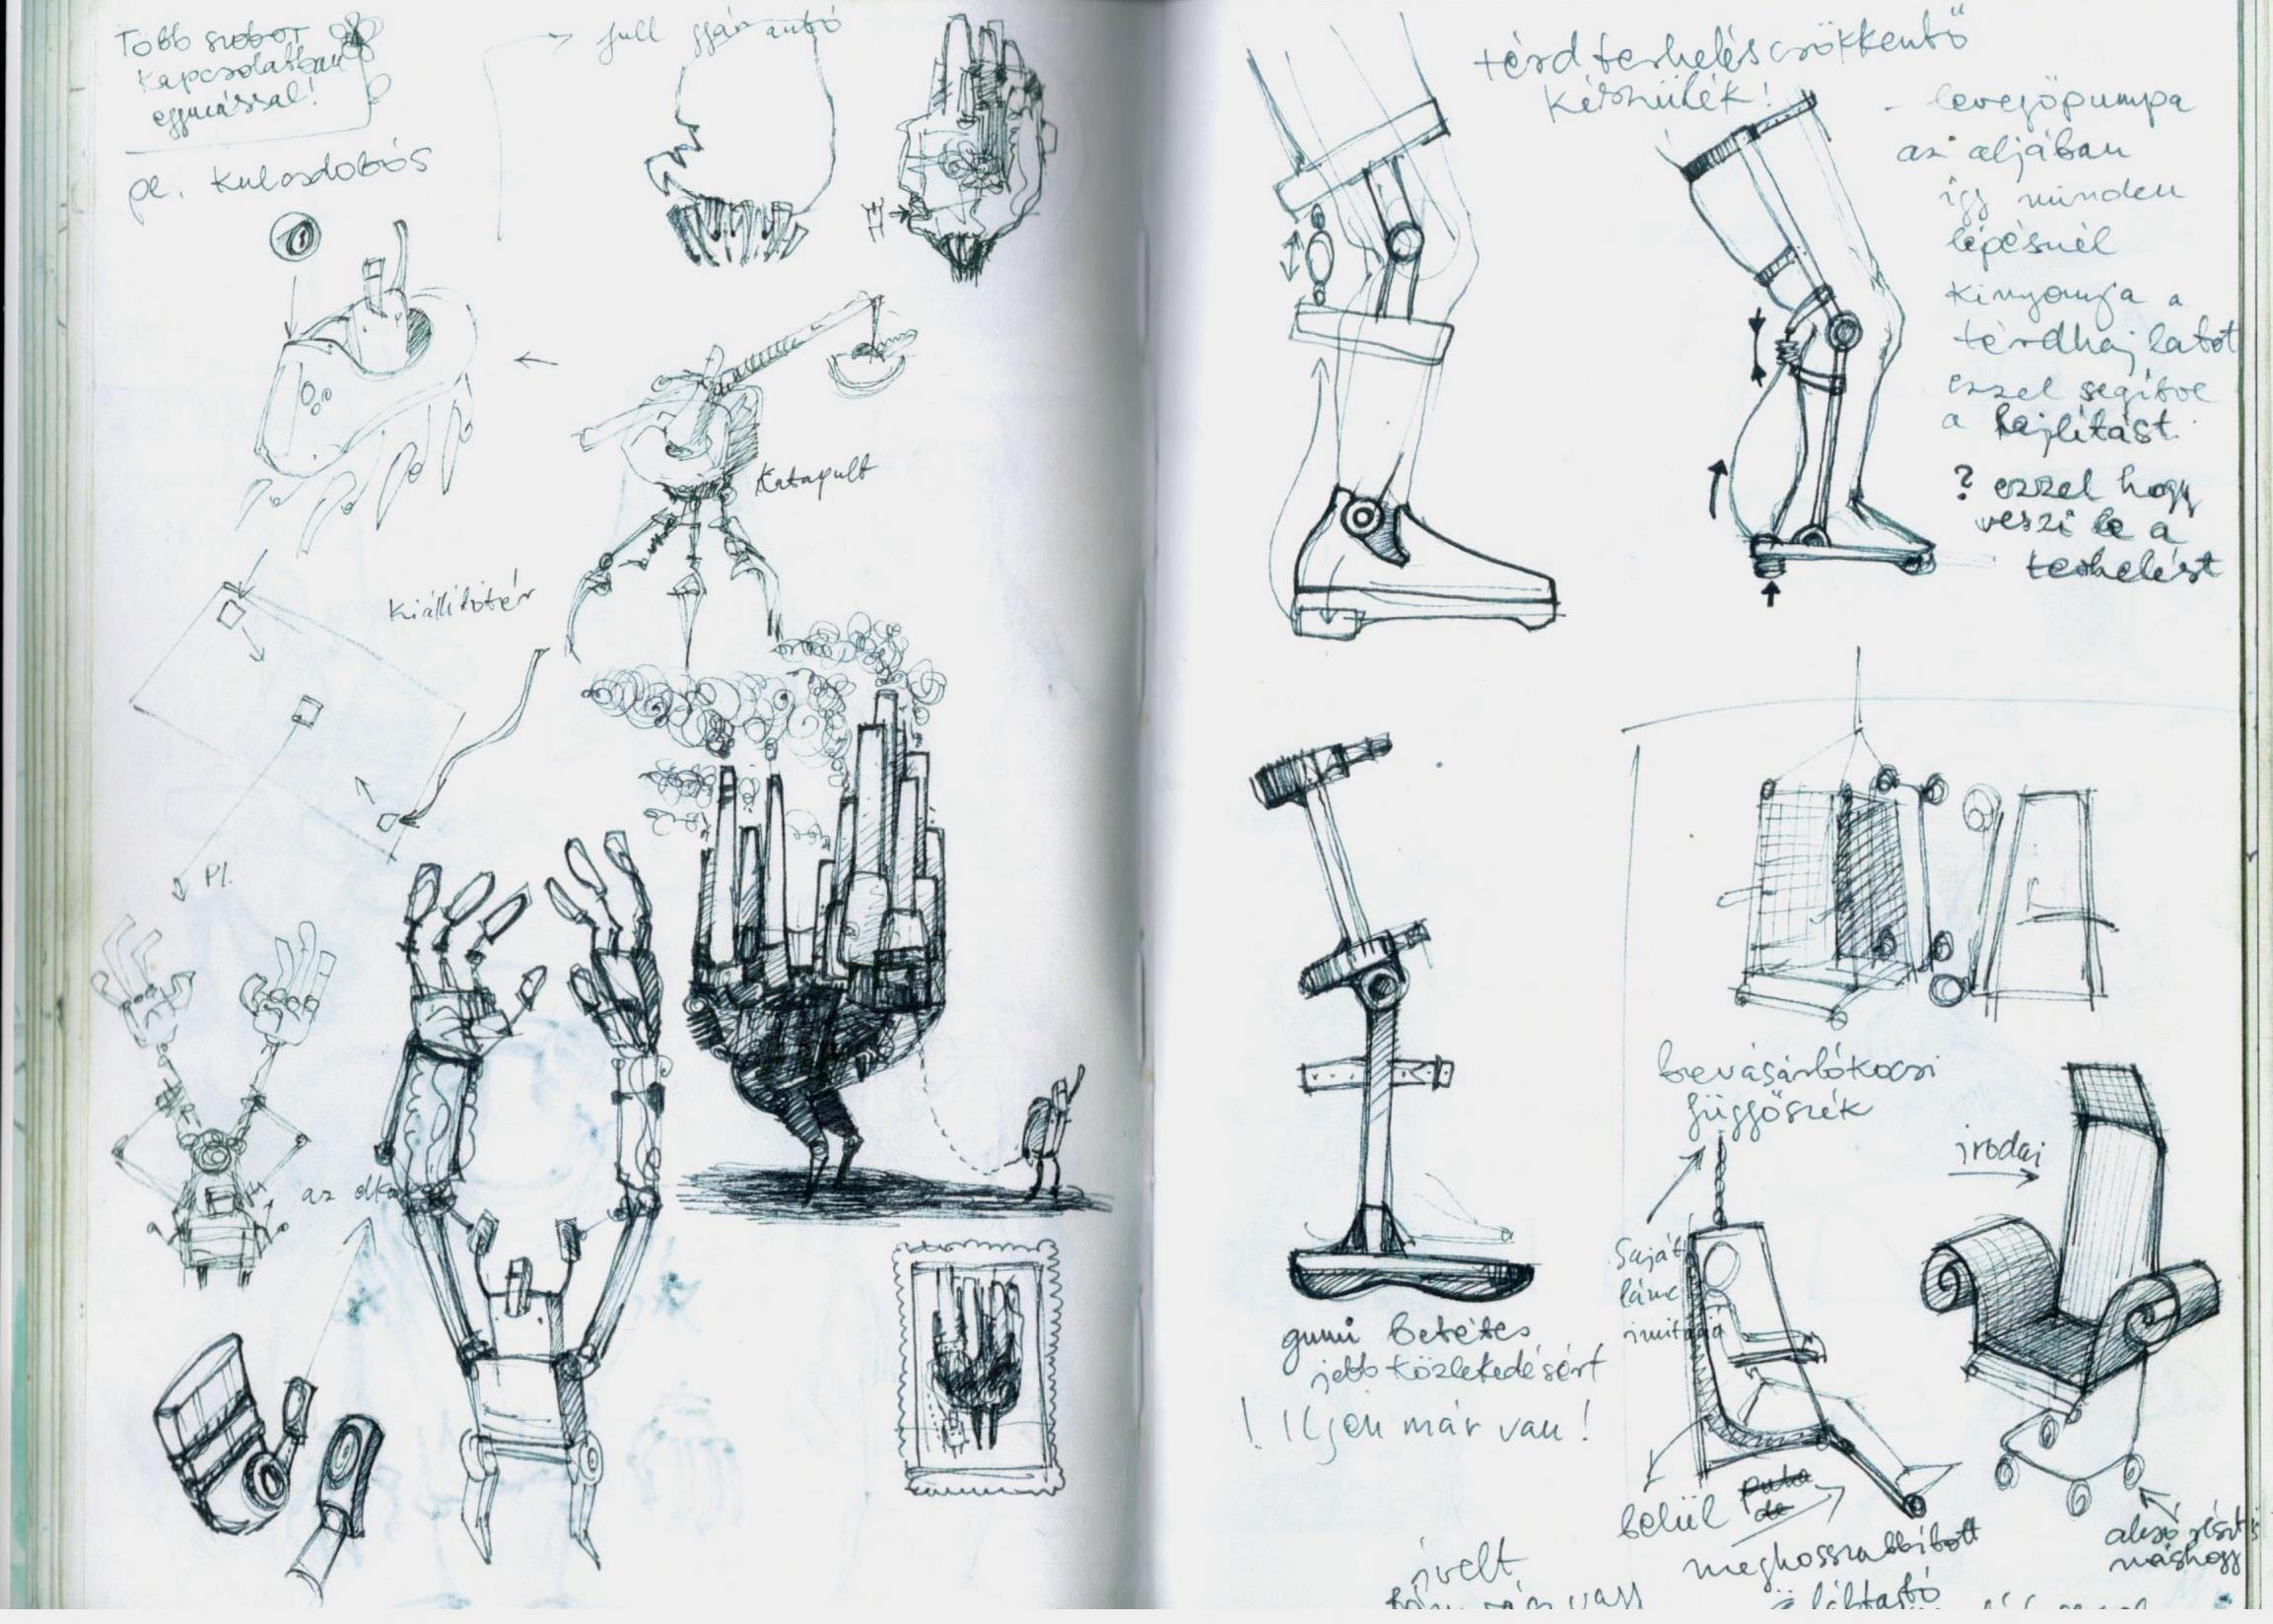 Több szobor
kapcsolatban
egymással!
pl. kulcsdobós
full gyár autó
Katapult
Kiállítótér
Pl.
az
térd terhelés csökkentő
készülék!
- levegőpumpa
az aljában
így minden
lépésnél
kinyomja a
térdhajlatot
ezzel segítve
a hajlítást.
? ezzel hogy
veszi le a
terhelést
gumi betétes
jobb közlekedésért
! Ilyen már van!
bevásárlókocsi
függőszék
irodai
Saját
lánc
imitáció
belül
meghosszabbított
lábtartó
alsó részt
máshogy
ívelt